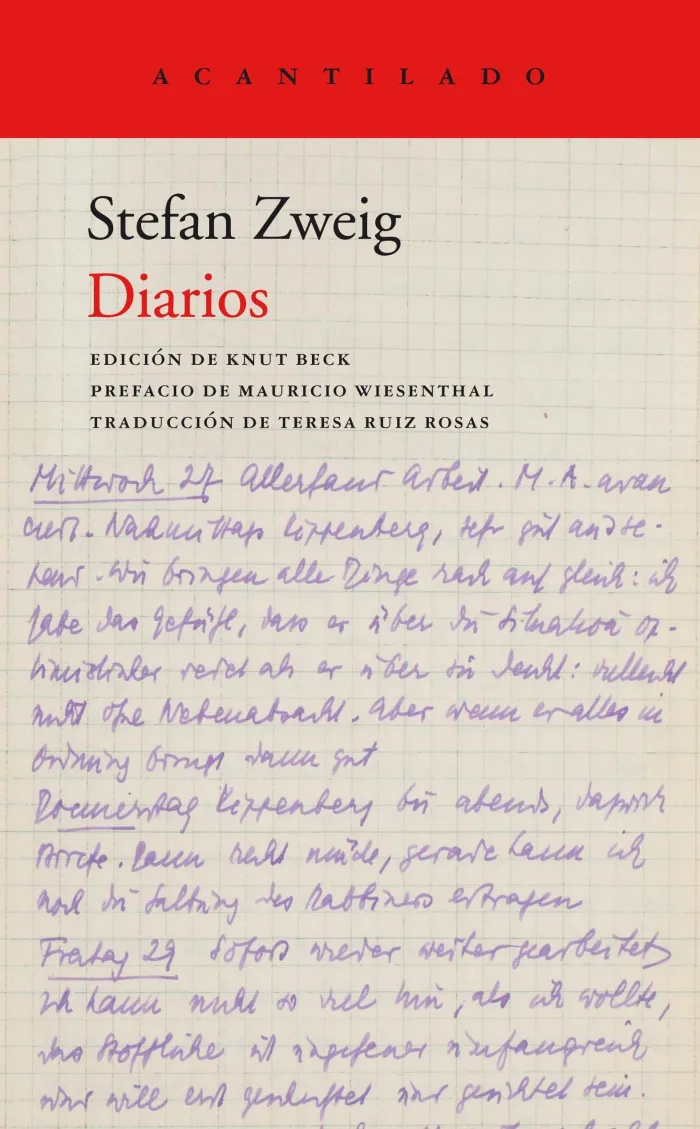 ACANTILADO
Stefan Zweig
Diarios
EDICIÓN DE KNUT BECK
PREFACIO DE MAURICIO WIESENTHAL
TRADUCCIÓN DE TERESA RUIZ ROSAS
Mittwoch 27 Allerhand Arbeit. M. A. avan
ciert. Nachmittags Kippenberg, sehr gut
Wir bringen alle Dinge rasch auf gleich: ich
habe das Gefühl, dass er über die Situation op-
timistischer redet als er über sie denkt: vielleicht
nicht ohne Nebenabsicht. Aber wenn er alles in
Ordnung bringt dann gut
Donnerstag Kippenberg bis abends, dazwisch
Briefe. Dann recht müde, gerade kann ich
noch die Salbung des Rabbiners ertragen
Freitag 29 Sofort wieder weitergearbeitet
Ich kann nicht so viel hin, als ich wollte,
das Stoffliche ist ungeheuer umfangreich
und will erst und gesichtet sein.